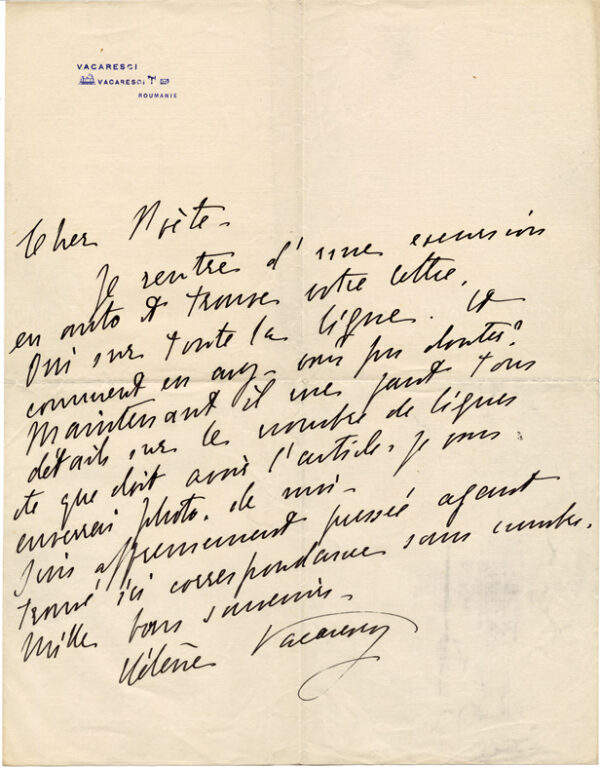 VACARESCI
VACARESCI T
ROUMANIE
Cher Poète.
Je rentre d'une excursion
en auto et trouve votre lettre.
Oui sur toute la ligne. Et
comment en avez-vous pu douter?
Maintenant il me faut tous
détails sur le nombre de lignes
etc que doit avoir l'article. Je vous
enverrai photo. de moi.
Suis affreusement pressée ayant
trouvé ici correspondance sans nombre.
Mille bons souvenirs.
Hélène Vacaresco